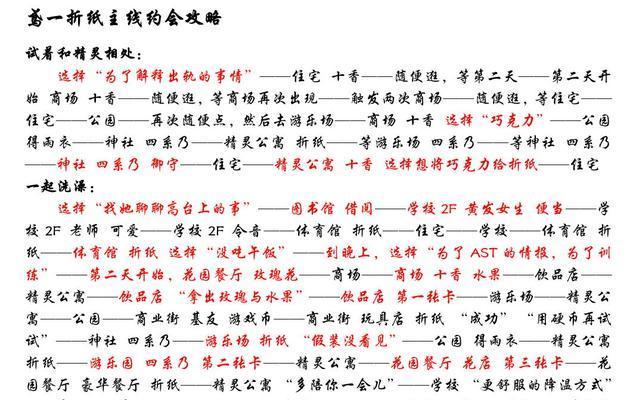 鸢一折纸主线约会攻略
试着和精灵相处：
选择“为了解释出轨的事情”——住宅 十香——随便逛，等第二天——第二天开
始 商场 十香——随便逛，等商场再次出现——触发两次商场——随便逛，等住宅——
住宅——公园——再次随便点，然后去游乐场——商场 十香 选择“巧克力”——公园
得雨衣——神社 四系乃——精灵公寓 折纸——等游乐场 四系乃——等神社 四系乃—
—神社 四系乃 御守——住宅——精灵公寓 十香 选择想将巧克力给折纸——住宅
一起洗澡：
选择“找她聊聊高台上的事”——图书馆 借阅——学校 2F 黄发女生 便当——学
校 2F 老师 可爱——学校 2F 令音——体育馆 折纸——住宅——学校——体育馆 折
纸——体育馆 折纸 选择“没吃午饭”——到晚上，选择“为了 AST 的情报，为了训
练”——第二天开始，花园餐厅 玫瑰花——商场——商场 十香 水果——饮品店——
精灵公寓——饮品店 “拿出玫瑰与水果”——饮品店 第一张卡——游乐场——精灵公
寓——公园——商业街 基友 游戏币——商业街 玩具店 折纸 “成功” “用硬币再试
试”——神社 四系乃——游乐场 折纸 “假装没看见”——公园 得雨衣——精灵公寓
折纸——游乐园 四系乃 第二张卡——精灵公寓——花园餐厅 花店 第三张卡——花
园餐厅 豪华餐厅 折纸——精灵公寓 “多陪你一会儿”——学校 “更舒服的降温方式”